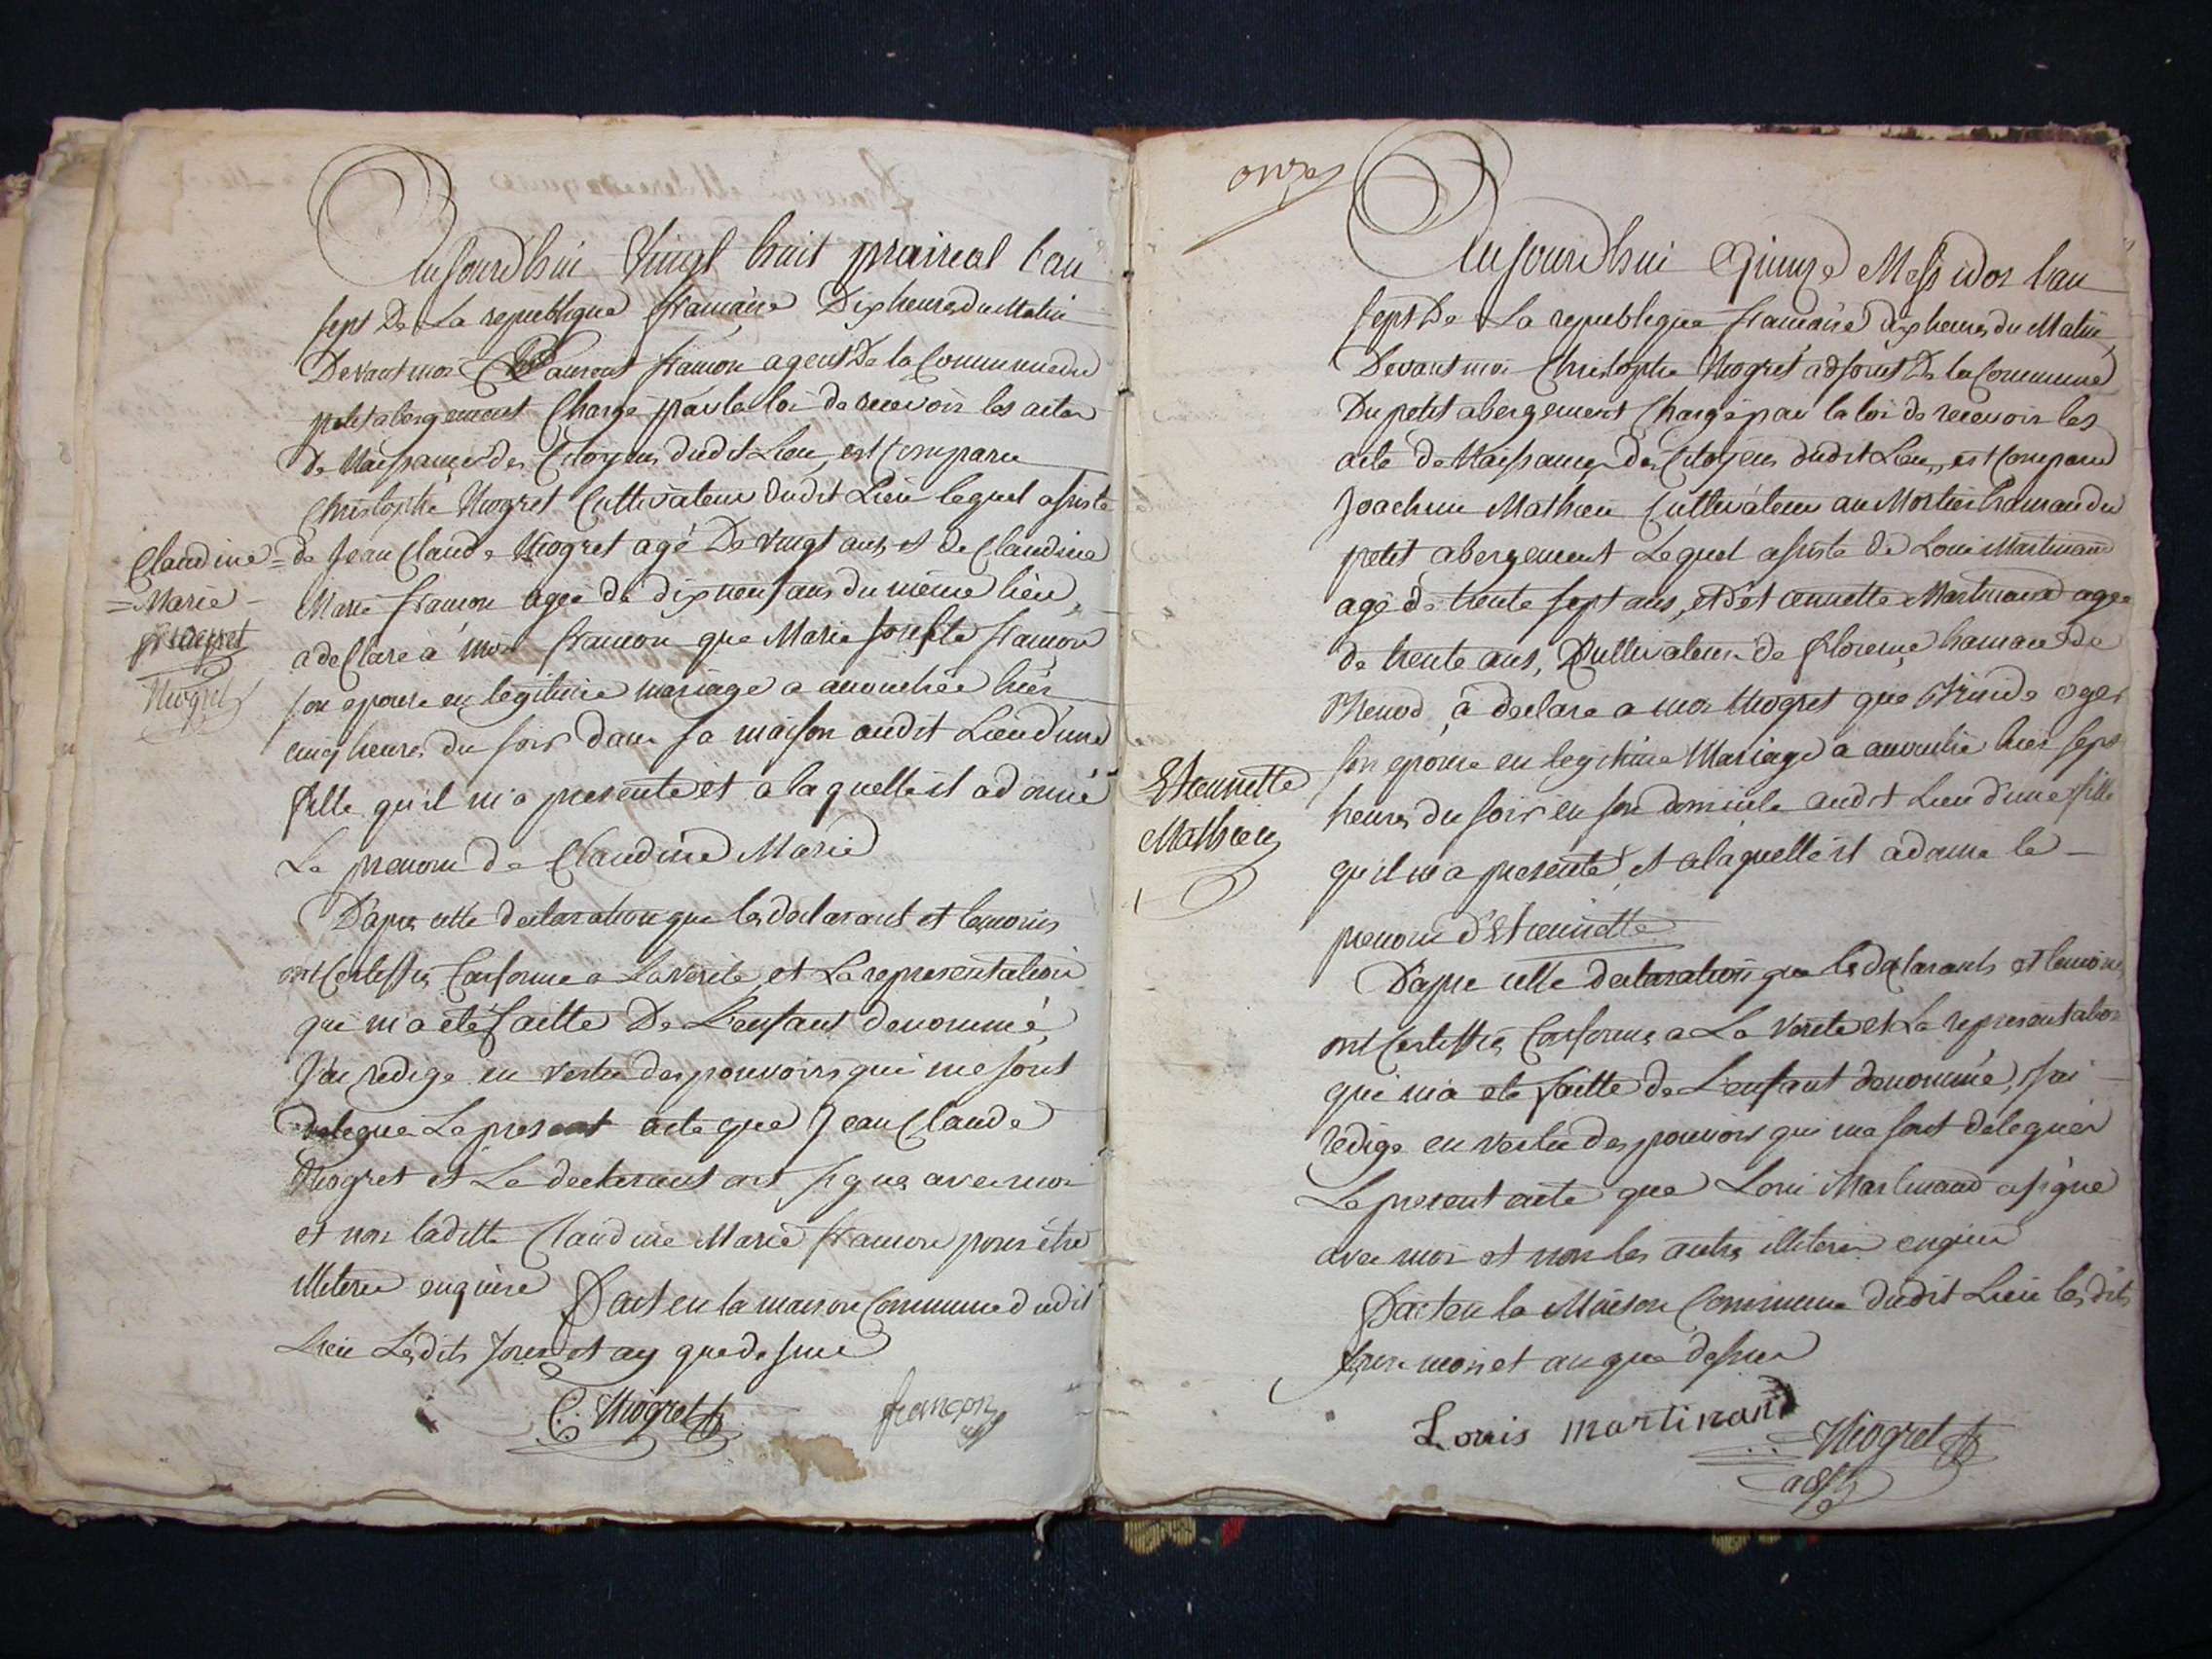 Aujourd'hui Vingt huit prairial l'an
sept De La republique francaise Dix heures du Matin
Devant moi Laurent francon agent De la Commune du
petit abergement Chargé par la loi de recevoir les actes
De Naissances des Citoyens dudit Lieu, est Comparu
Christophe Niogret Cultivateur dudit Lieu lequel assisté
Claudine = de Jean Claude Niogret agé De vingt ans et de Claudine
= Marie - Marie francon agée de dix neuf ans du même lieu,
a declaré à moi francon que Marie Josephte francon
Niogret
son epouse en legitime mariage a accouchée hier
cinq heures du soir dans sa maison audit Lieu d'une
fille qu'il m'a presenté et a laquelle il a donné
Le prenom de Claudine Marie
D'apres cette declaration que les declarant et temoins
ont Certiffiés Conforme a La verité, et La representation
qui m'a eté faitte De L'enfant denommé,
J'ai redigé en vertu des pouvoirs qui me sont
delegués Le present acte que Jean Claude
Niogret et Le declarant ont signés avec moi
et non laditte Claudine Marie francon pour être
illiteree enquise Fait en la maison Commune dudit
Lieu Lesdits jour et an que dessus
C. Niogret francon
onze
Aujourdhui Quinze Messidor l'an
sept De La republique francaise dix heures du Matin,
Devant moi Christophe Niogret adjoint De la Commune
Du petit abergement Chargé par la loi de recevoir les
acte de Naissances des Citoyens dudit Lieu, est Comparu
Joachim Mathieu Cultivateur au Mortier hamau du
petit abergement Lequel assisté de Louis Martinand
agé de trente sept ans, et d'Etiennette Martinand agée
de trente ans, Cultivateurs de florence hamau de
Brenod, à declaré a moi Niogret que oger
son epouse en legitime Mariage a accouchée hier sept
Etiennette
Mathieu
heures du soir en son domicile audit Lieu d'une fille
qu'il m'a presenté, et a laquelle il a donné le -
prenom d'Etiennette
D'apre cette declaration que les declarants et temoins
ont Certiffiés Conforme a La verité et La representation
qui m'a eté faitte de L'enfant denommé, J'ai
redigé en vertu des pouvoirs qui me sont delegués
Le present acte que Louis Martinand a signé
avec moi et non les autres illiterés enquis
Fait en la Maison Commune dudit Lieu lesdits
jour mois et an que dessus
Louis martinand Niogret
adjt